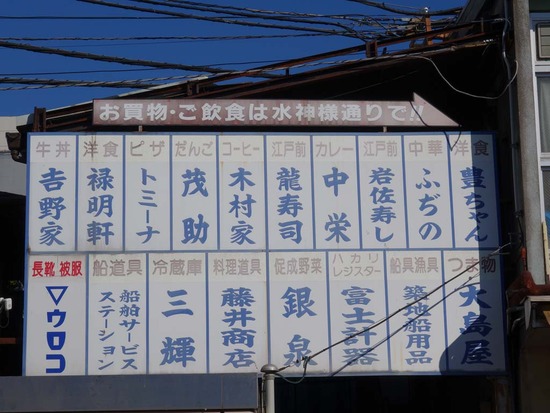 お買物・ご飲食は水神様通りで!!
牛丼
𠮷野家
洋食
禄明軒
ピザ
トミーナ
だんご
茂助
コーヒー
木村家
江戸前
龍寿司
カレー
中栄
江戸前
岩佐寿し
中華
ふぢの
洋食
豊ちゃん
長靴 被服
▽ウロコ
船道具
船舶サービス
ステーション
冷蔵庫
三輝
料理道具
藤井商店
促成野菜
銀泉
ハカリ
レジスター
富士計器
船具漁具
築地船用品
つま物
大島屋